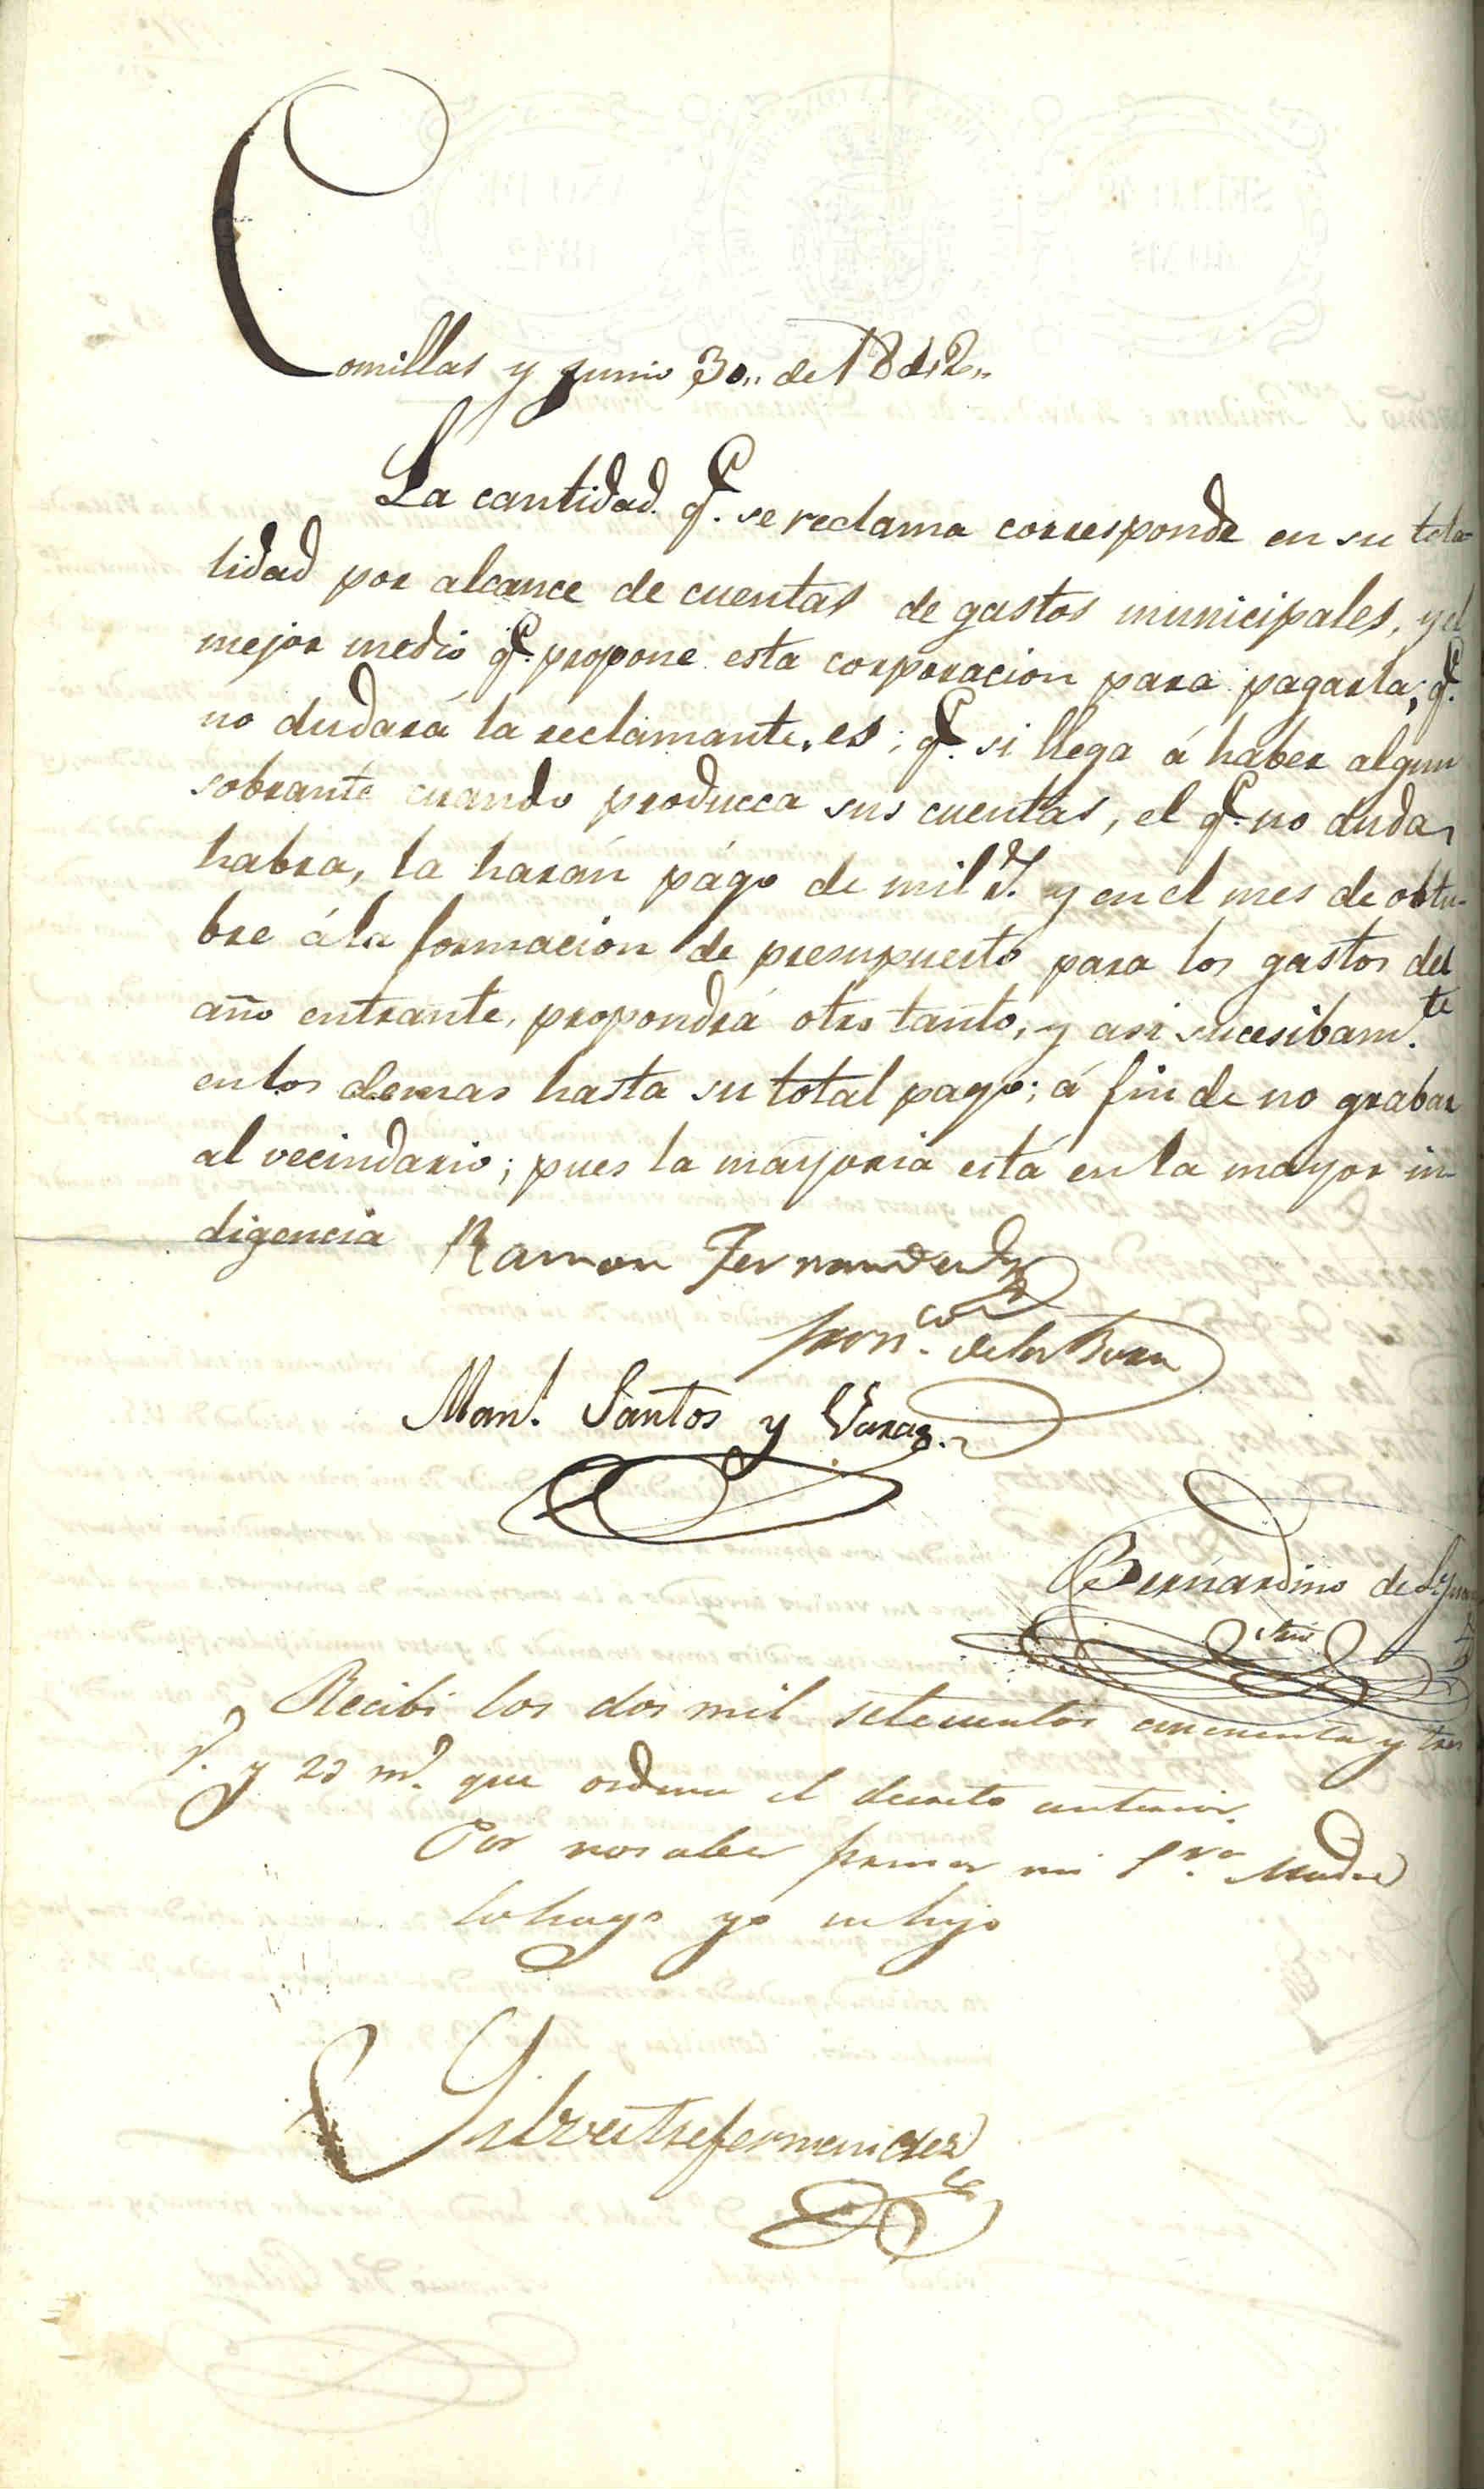 Comillas y junio 30,, de 1842,,
La cantidad q.e se reclama corresponde en su tota=
lidad por alcance de cuentas de gastos municipales, y el
mejor medio q.e propone esta corporacion para pagarla; q.e
no dudará la reclamante, es; q.e si llega á haber algun
sobrante cuando producca sus cuentas, el q.e no dudan
habra, la harán págo de mil r.s y en el mes de obtu-
bre á la formacion de presupuesto para los gastos del
año entrante, propondrá otro tanto, y asi sucesibam.te
en los demas hasta su total pago; á fin de no grabar
al vecindario; pues la mayoria está en la mayor in-
digencia Ramon Fernandez
Fran.co de la
Man.l Santos y
Bernardino de
Srio
Recibi los dos mil setecientos cincuenta y tres
r.s y 23 m.s que ordena el decreto anterior.
Por no saber firmar mi S.ra Madre
lo hago yo su hijo
Silvestre fernandez